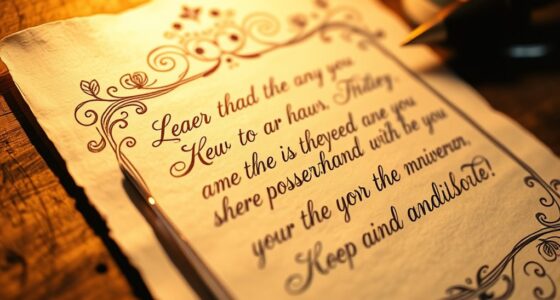 Leaer thad the any you
Hew to ar haus. Thtley,
ame the is theyeed ane you
shere posserhand with be you
your the yor the mniverızn,
Hoep aind andilborte!